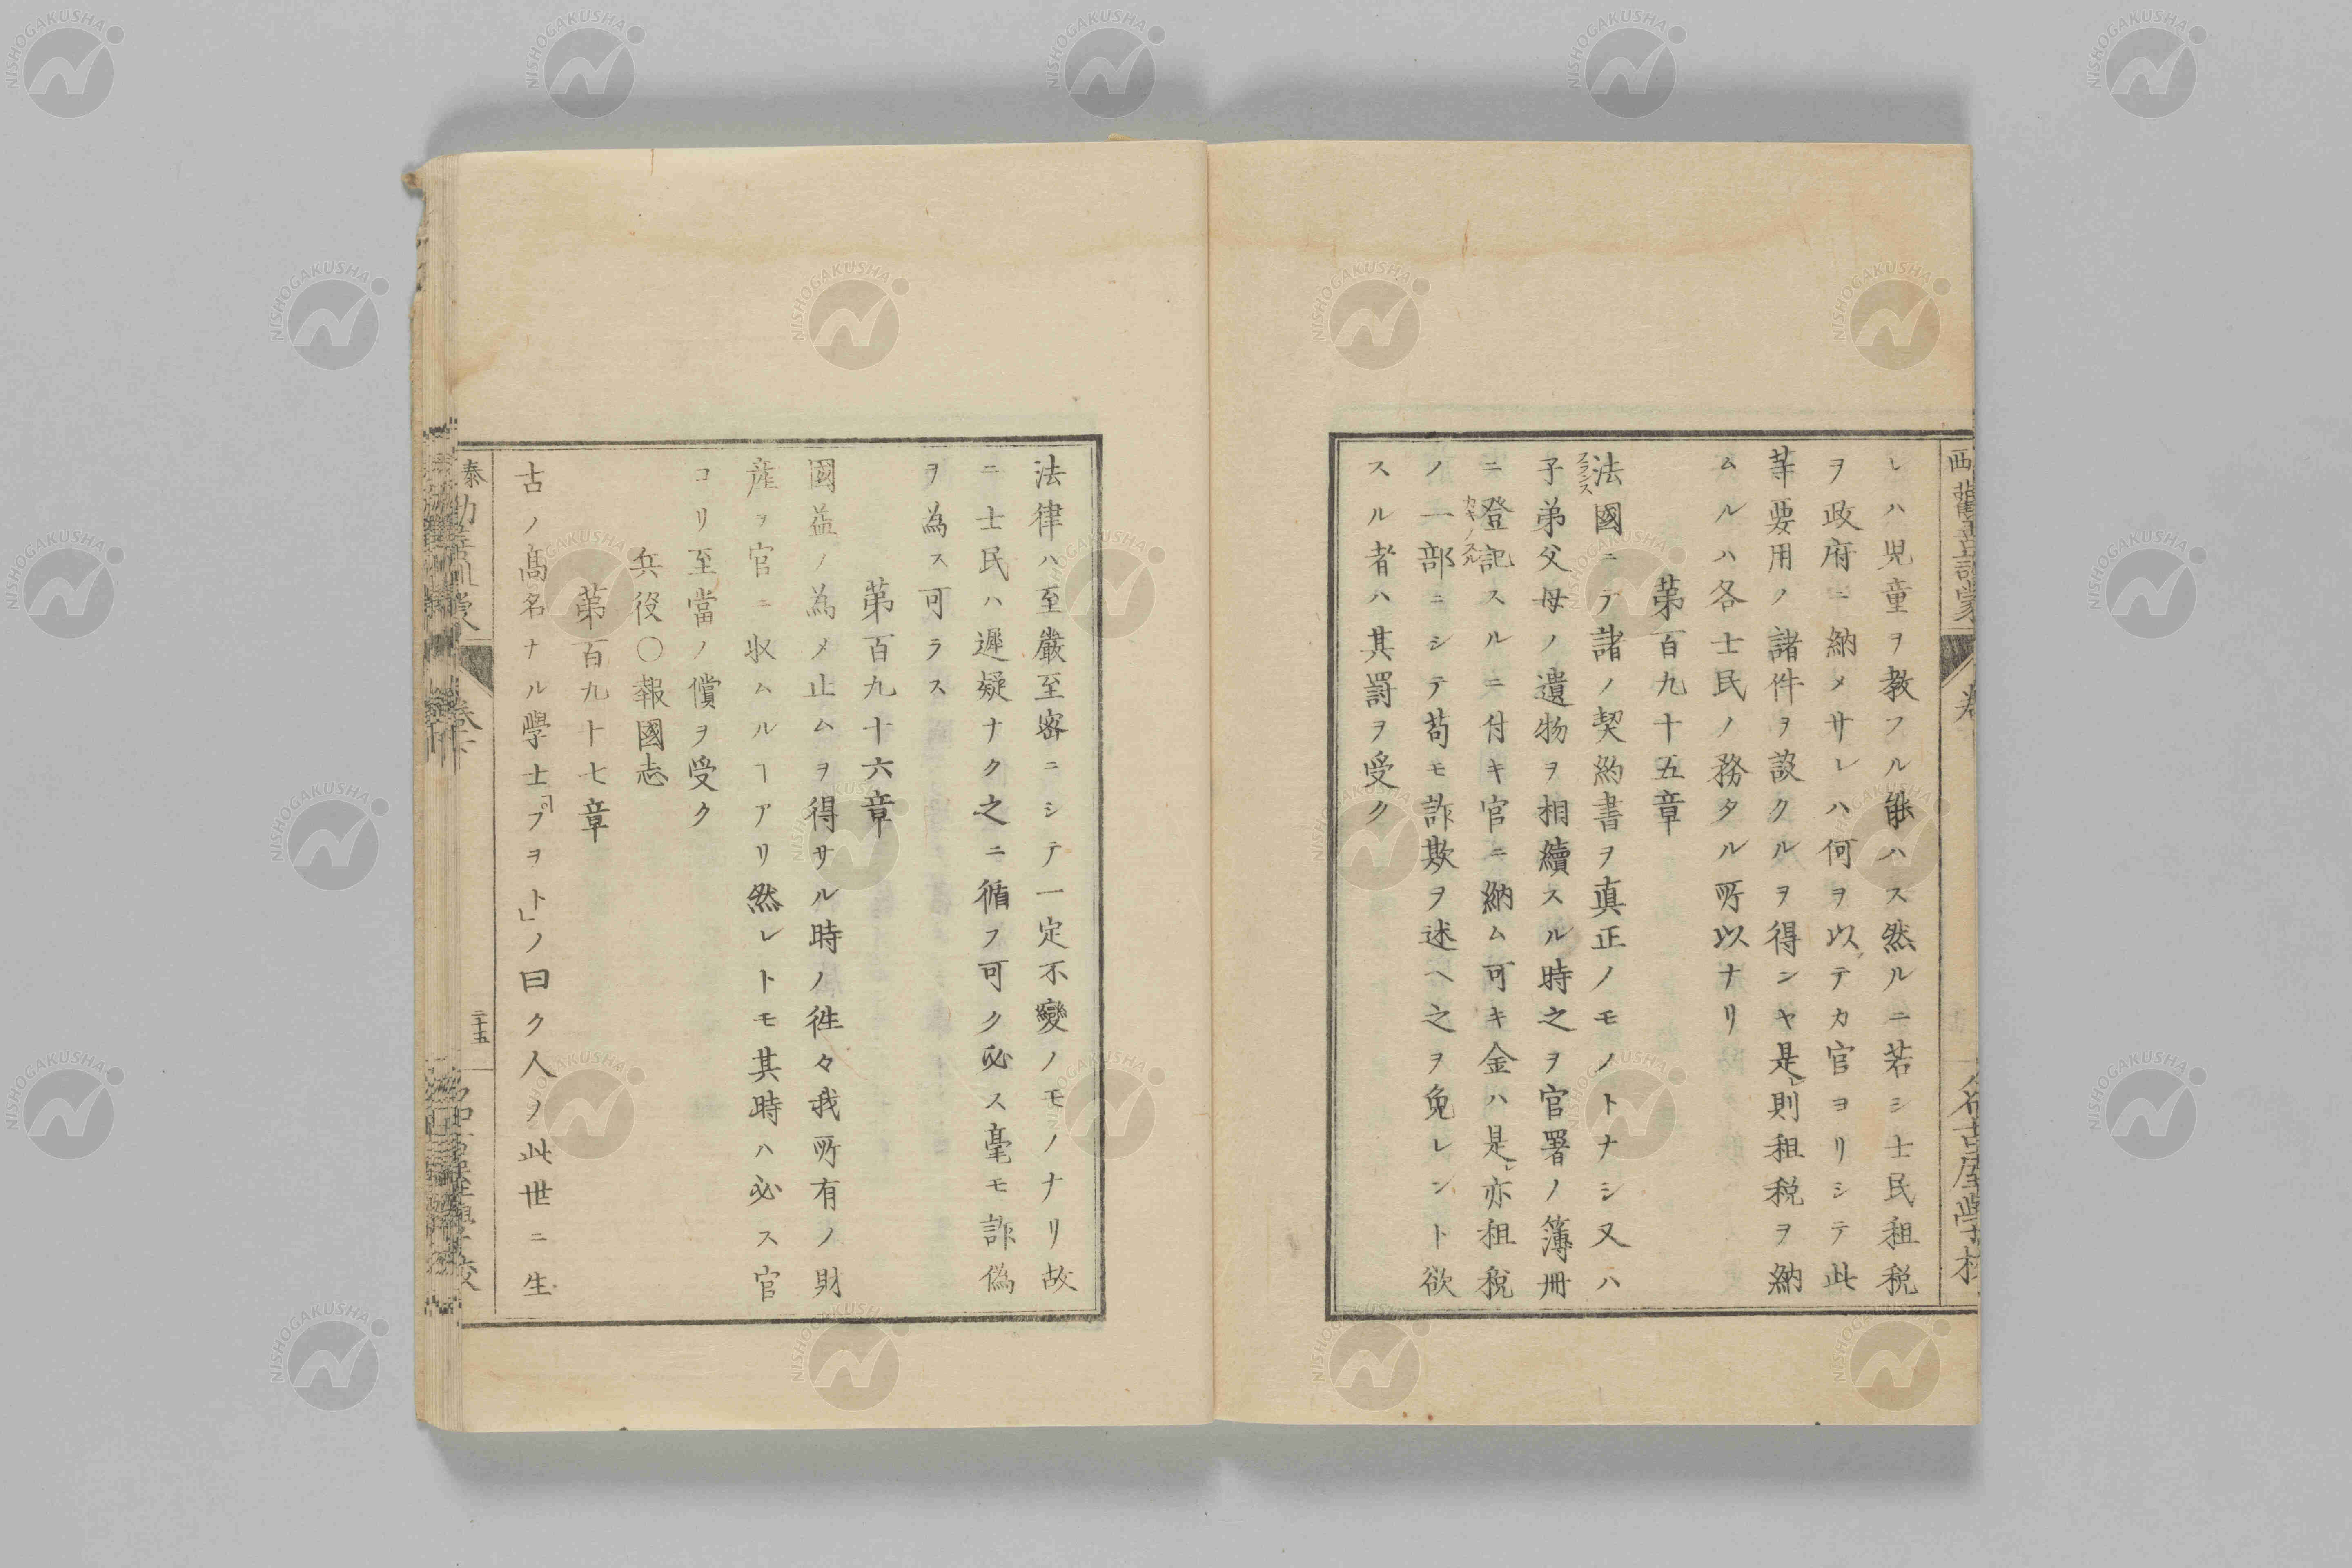 レハ児童ヲ教フル能ハス然ルニ若シ士民租税
ヲ政府ニ納メサレハ何ヲ以テカ官ヨリシテ此
等要用ノ諸件ヲ設クルヲ得ンヤ是レ則租税ヲ納
ムルハ各士民ノ務タル所以ナリ
第百九十五章
法國ニテ諸ノ契約書ヲ真正ノモノトナシ又ハ
フランス
子弟父母ノ遺物ヲ相續スル時之ヲ官署ノ簿冊
ニ登記スルニ付キ官ニ納ム可キ金ハ是レ亦租税
カキノスル
ノ一部ニシテ苟モ詐欺ヲ述ヘ之ヲ免レント欲
スル者ハ其罰ヲ受ク
法律ハ至嚴至密ニシテ一定不變ノモノナリ故
ニ士民ハ遲疑ナク之ニ循フ可ク必ス毫モ詐偽
ヲ為ス可ラス
第百九十六章
國益ノ為メ止ムヲ得サル時ノ徃々我所有ノ財
産ヲ官ニ収ムルヿアリ然レトモ其時ハ必ス官
コリ至當ノ償ヲ受ク
兵役〇報國志
第百九十七章
古ノ高名ナル學士「プヲト」ノ曰ク人ノ此世ニ生
泰
二十五
西勸善訓蒙
名古屋學校
NISHOGAKUSHA